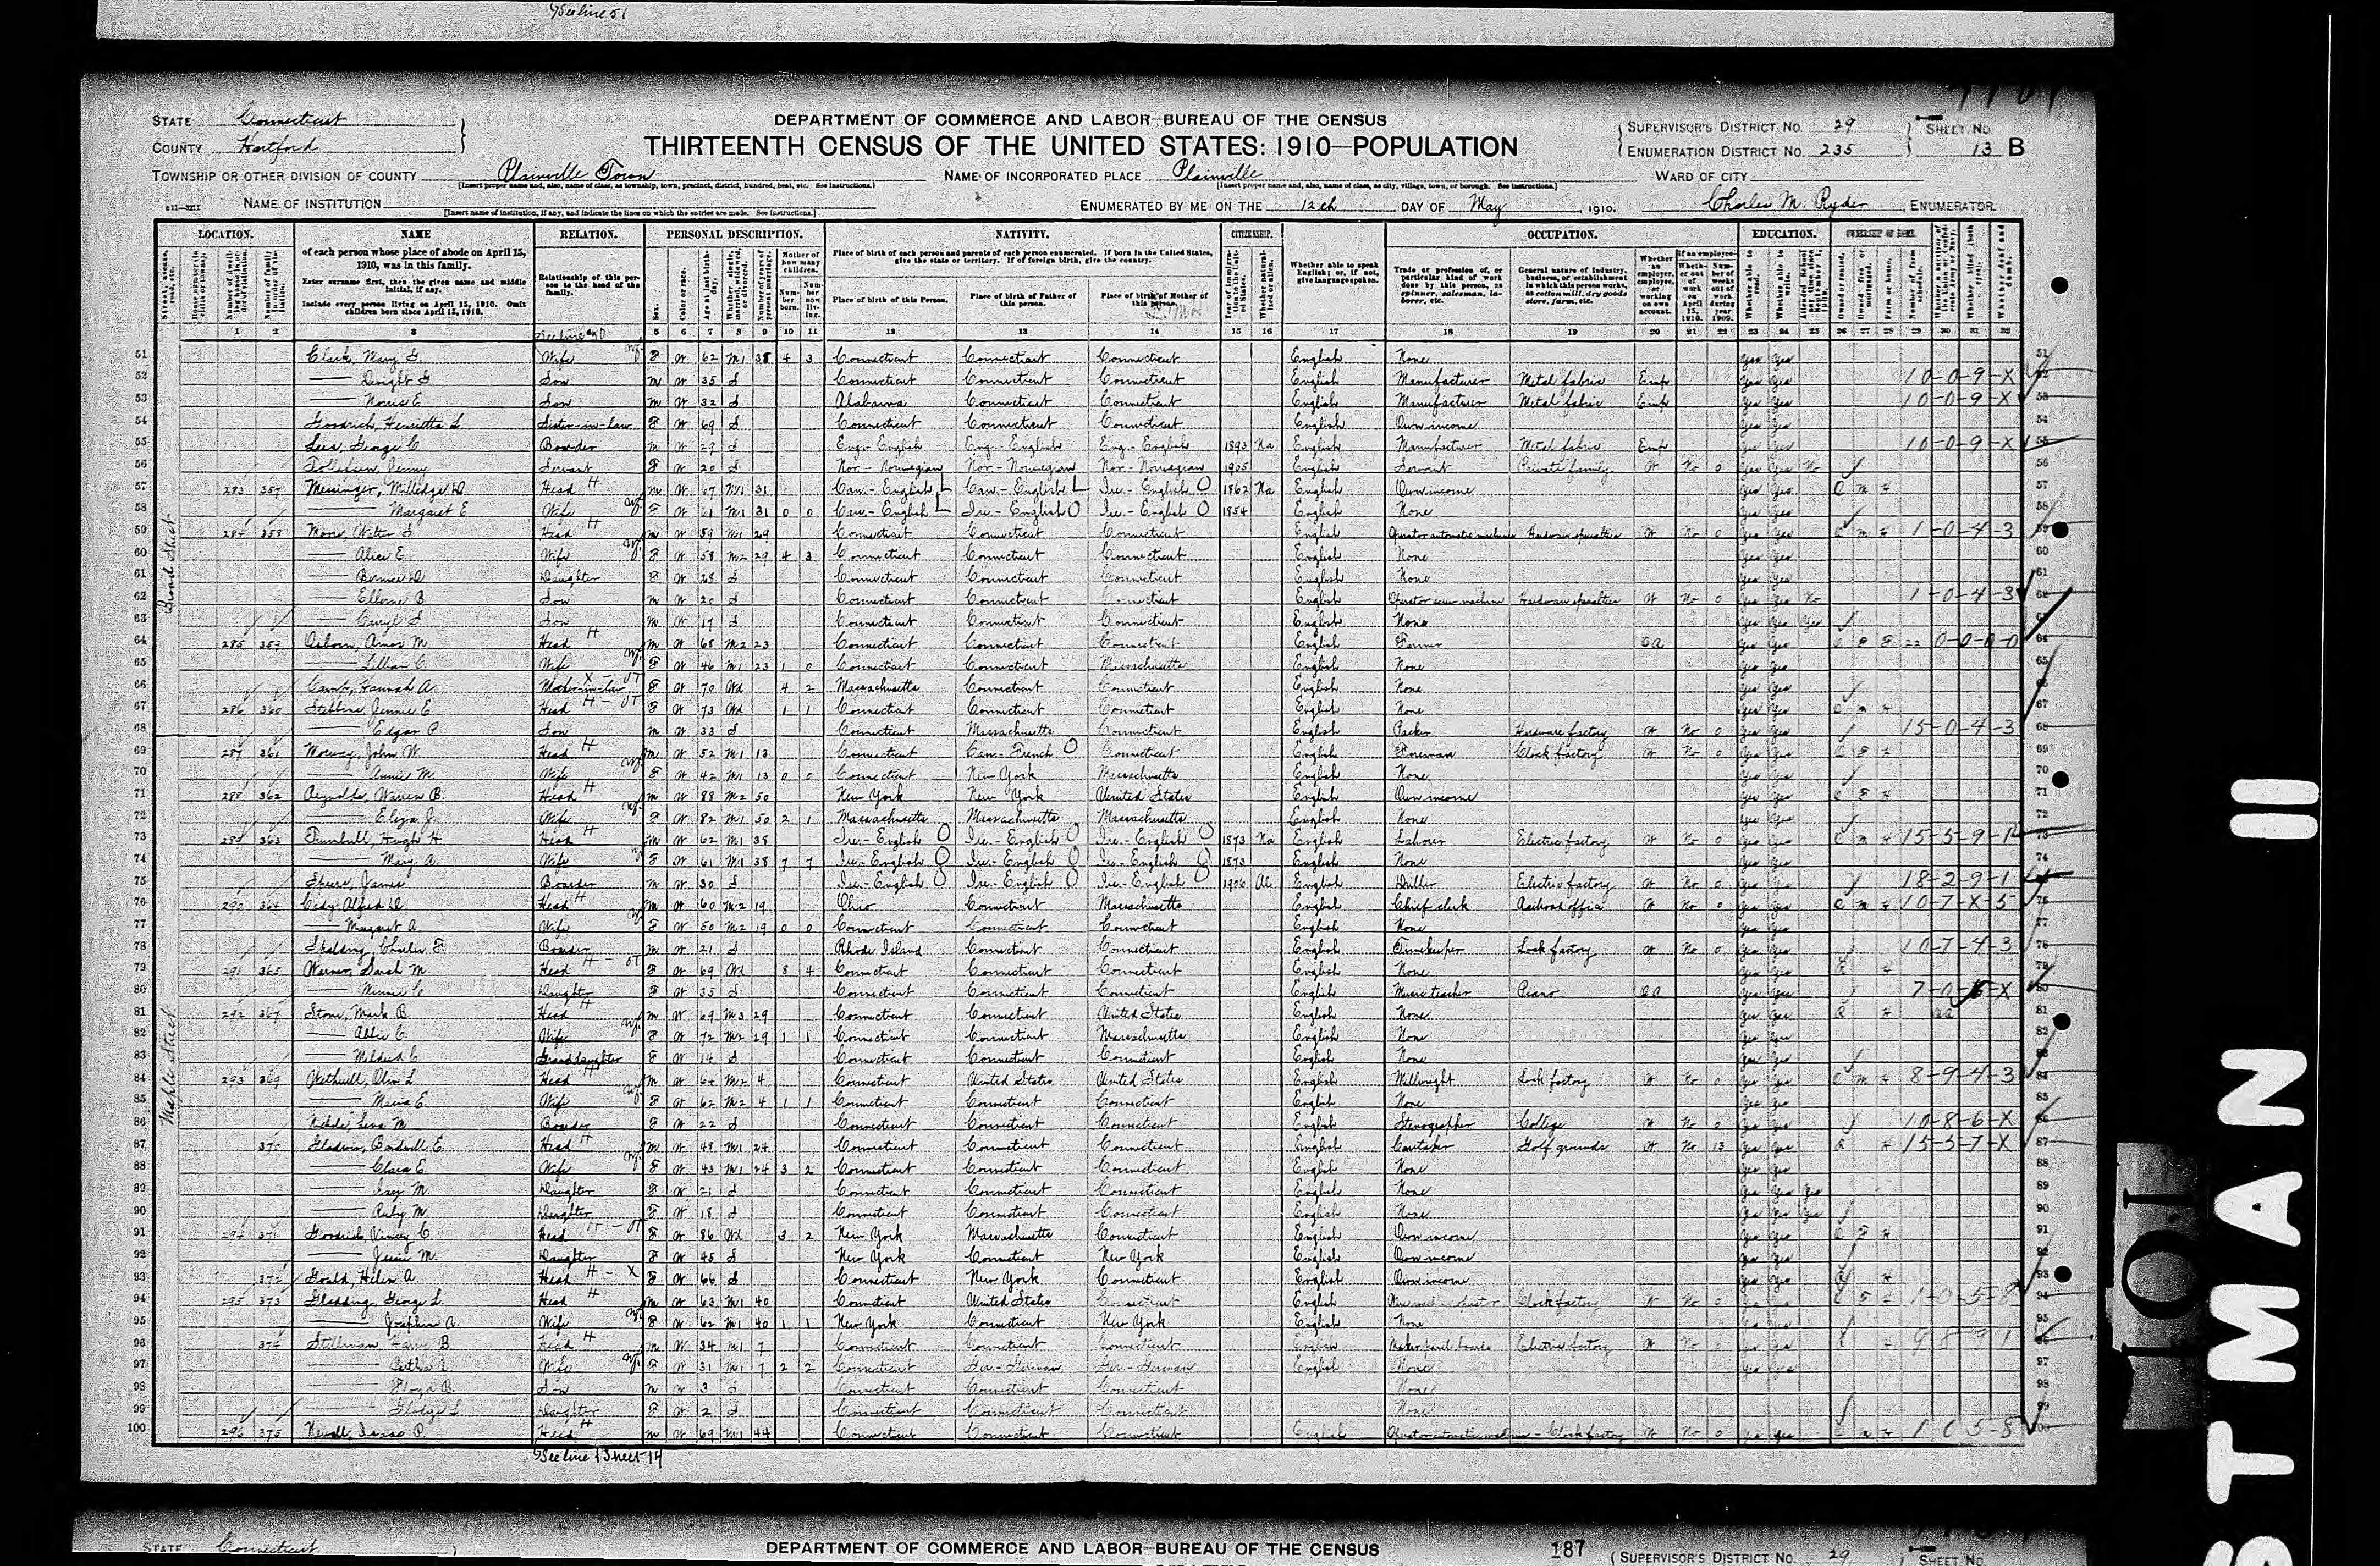 See line 51
STATE Connecticut
COUNTY Hartford
DEPARTMENT OF COMMERCE AND LABOR—BUREAU OF THE CENSUS
THIRTEENTH CENSUS OF THE UNITED STATES: 1910—POPULATION
SUPERVISOR'S DISTRICT NO. 29
ENUMERATION DISTRICT NO. 235
SHEET NO. 13 B
TOWNSHIP OR OTHER DIVISION OF COUNTY Plainville Town
NAME OF INCORPORATED PLACE Plainville
WARD OF CITY
NAME OF INSTITUTION
ENUMERATED BY ME ON THE 12th DAY OF May, 1910. Charles M. Ryder, ENUMERATOR.
LOCATION. NAME RELATION. PERSONAL DESCRIPTION. NATIVITY. CITIZENSHIP. OCCUPATION. EDUCATION. OWNERSHIP OF HOME.
of each person whose place of abode on April 15, 1910, was in this family.
Enter surname first, then the given name and middle initial, if any.
Include every person living on April 15, 1910. Omit children born since April 15, 1910.
Relationship of this person to the head of the family.
Place of birth of each person and parents of each person enumerated. If born in the United States, give the state or territory. If of foreign birth, give the country.
Place of birth of this Person. Place of birth of Father of this person. Place of birth of Mother of this person.
Whether able to speak English; or, if not, give language spoken.
Trade or profession of, or particular kind of work done by this person, as spinner, salesman, laborer, etc.
General nature of industry, business, or establishment in which this person works, as cotton mill, dry goods store, farm, etc.
1 2 3 4 5 6 7 8 9 10 11 12 13 14 15 16 17 18 19 20 21 22 23 24 25 26 27 28 29 30 31 32
51 Clark, Mary G. Wife F W 62 M1 38 4 3 Connecticut Connecticut Connecticut English None Yes Yes
52 Dwight G Son M W 35 S Connecticut Connecticut Connecticut English Manufacturer Metal fabric Emp Yes Yes 10-0-9-X
53 Norris E Son M W 32 S Alabama Connecticut Connecticut English Manufacturer Metal fabric Emp Yes Yes 10-0-9-X
54 Goodrich, Henrietta L. Sister-in-law F W 69 S Connecticut Connecticut Connecticut English Own income Yes Yes
55 George C Boarder M W 29 S Eng.-English Eng.-English Eng.-English 1893 Na English Manufacturer Metal fabric Emp Yes Yes 10-0-9-X
56 Jenny Servant F W 20 S Nor.-Norwegian Nor.-Norwegian Nor.-Norwegian 1905 English Servant Private family W No 0 Yes Yes No
57 283 357 Messinger, Milledge D Head M W 67 M1 31 Can-English Can-English Ire.-English 1862 Na English Own income Yes Yes O M H
58 Margaret E Wife F W 61 M1 31 0 0 Can-English Ire.-English Ire.-English 1854 English None Yes Yes
59 284 358 Moore, Walter S Head M W 59 M1 29 Connecticut Connecticut Connecticut English Operator automatic machine Hardware specialties W No 0 Yes Yes O M H 1-0-4-3
60 Alice E. Wife F W 58 M2 29 4 3 Connecticut Connecticut Connecticut English None Yes Yes
61 Bernice D Daughter F W 28 S Connecticut Connecticut Connecticut English None Yes Yes
62 B Son M W 20 S Connecticut Connecticut Connecticut English Operator screw machine Hardware specialties W No 0 Yes Yes No 1-0-4-3
63 Carryl S Son M W 17 S Connecticut Connecticut Connecticut English None Yes Yes Yes
64 285 359 Osborn, Amos M Head M W 68 M2 23 Connecticut Connecticut Connecticut English Farmer OA O F F 22 0-0-0-0
65 Lillian C. Wife F W 46 M1 23 1 0 Connecticut Connecticut Massachusetts English None Yes Yes
66 Camp, Hannah A. Mother-in-law F W 70 Wd 4 2 Massachusetts Connecticut Connecticut English None Yes Yes
67 286 360 Stebbins, Jennie E. Head F W 73 Wd 1 1 Connecticut Connecticut Connecticut English None Yes Yes O M H
68 Edgar P Son M W 33 S Connecticut Massachusetts Connecticut English Packer Hardware factory W No 0 Yes Yes 15-0-4-3
69 287 361 John W. Head M W 52 M1 13 Connecticut Can-French Connecticut English Foreman Clock factory W No 0 Yes Yes O F H
70 Annie M. Wife F W 42 M1 13 0 0 Connecticut New York Massachusetts English None Yes Yes
71 288 362 Reynolds, Warren B. Head M W 88 M2 50 New York New York United States English Own income Yes Yes O F H
72 Eliza J. Wife F W 82 M1 50 2 1 Massachusetts Massachusetts Massachusetts English None Yes Yes
73 289 363 Turnbull, Hugh H Head M W 62 M1 38 Ire-English Ire-English Ire-English 1873 Na English Laborer Electric factory W No 0 Yes Yes O M H 15-5-9-1
74 Mary A. Wife F W 61 M1 38 7 7 Ire-English Ire-English Ire-English 1873 English None Yes Yes
75 James Boarder M W 30 S Ire-English Ire-English Ire-English 1906 Al English Driller Electric factory W No 0 Yes Yes 18-2-9-1
76 290 364 Cady, Alfred D. Head M W 60 M2 19 Ohio Connecticut Massachusetts English Chief clerk Railroad office W No 0 Yes Yes O M H 10-7-X-5
77 Margaret A Wife F W 50 M2 19 0 0 Connecticut Connecticut Connecticut English None Yes Yes
78 Spalding, Charles F Boarder M W 21 S Rhode Island Connecticut Connecticut English Timekeeper Lock factory W No 0 Yes Yes 10-7-4-3
79 291 365 Warner, Sarah M. Head F W 69 Wd 8 4 Connecticut Connecticut Connecticut English None Yes Yes R H
80 Minnie C Daughter F W 35 S Connecticut Connecticut Connecticut English Music teacher Piano OA Yes Yes
81 292 367 Stone, Mark B. Head M W 69 M3 29 Connecticut Connecticut United States English None Yes Yes R H
82 Abbie C. Wife F W 72 M2 29 1 1 Connecticut Connecticut Massachusetts English None Yes Yes
83 Mildred C Granddaughter F W 14 S Connecticut Connecticut Connecticut English None Yes Yes
84 293 369 Olin L Head M W 64 M2 4 Connecticut United States United States English Millwright Lock factory W No 0 Yes Yes O M H 8-9-4-3
85 Maria E. Wife F W 62 M2 4 1 1 Connecticut Connecticut Connecticut English None Yes Yes
86 Nichols, Lena M Boarder F W 22 S Connecticut Connecticut Connecticut English Stenographer College W No 0 Yes Yes 10-8-6-X
87 370 Gladwin, Burdell E. Head M W 48 M1 24 Connecticut Connecticut Connecticut English Caretaker Golf grounds W No 13 Yes Yes R H 15-5-7-X
88 Clara E. Wife F W 43 M1 24 3 2 Connecticut Connecticut Connecticut English None Yes Yes
89 M. Daughter F W 21 S Connecticut Connecticut Connecticut English None Yes Yes Yes
90 Ruby M. Daughter F W 18 S Connecticut Connecticut Connecticut English None Yes Yes Yes
91 294 371 Goodrich, C Head F W 86 Wd 3 2 New York Massachusetts Connecticut English Own income Yes Yes O F H
92 Jessie M. Daughter F W 45 S New York Connecticut New York English Own income Yes Yes
93 372 Gould, Helen A. Head F W 66 S Connecticut New York Connecticut English Own income Yes Yes R H
94 295 373 Gladding, George L. Head M W 63 M1 40 Connecticut United States Connecticut English Clock factory W No 0 O F H 1-0-5-8
95 Josephine A. Wife F W 62 M1 40 1 1 New York Connecticut New York English None
96 374 Stillman, Harry B Head M W 34 M1 7 Connecticut Connecticut Connecticut English Electric factory W No 0 Yes Yes R H 9 8 9 1
97 Bertha A. Wife F W 31 M1 7 2 2 Connecticut Ger-German Ger-German English None Yes Yes
98 Floyd B. Son M W 3 S Connecticut Connecticut Connecticut None
99 Gladys L Daughter F W 2 S Connecticut Connecticut Connecticut None
100 296 375 Newell, Isaac P. Head M W 69 M1 44 Connecticut Connecticut Connecticut English Operator automatic machine - Clock factory W No 0 Yes Yes O M H 1 0 5-8
Broad Street
Maple Street
See line 1 Sheet 14
STATE Connecticut
DEPARTMENT OF COMMERCE AND LABOR—BUREAU OF THE CENSUS
187
SUPERVISOR'S DISTRICT NO. 29
SHEET NO.
STMAN II